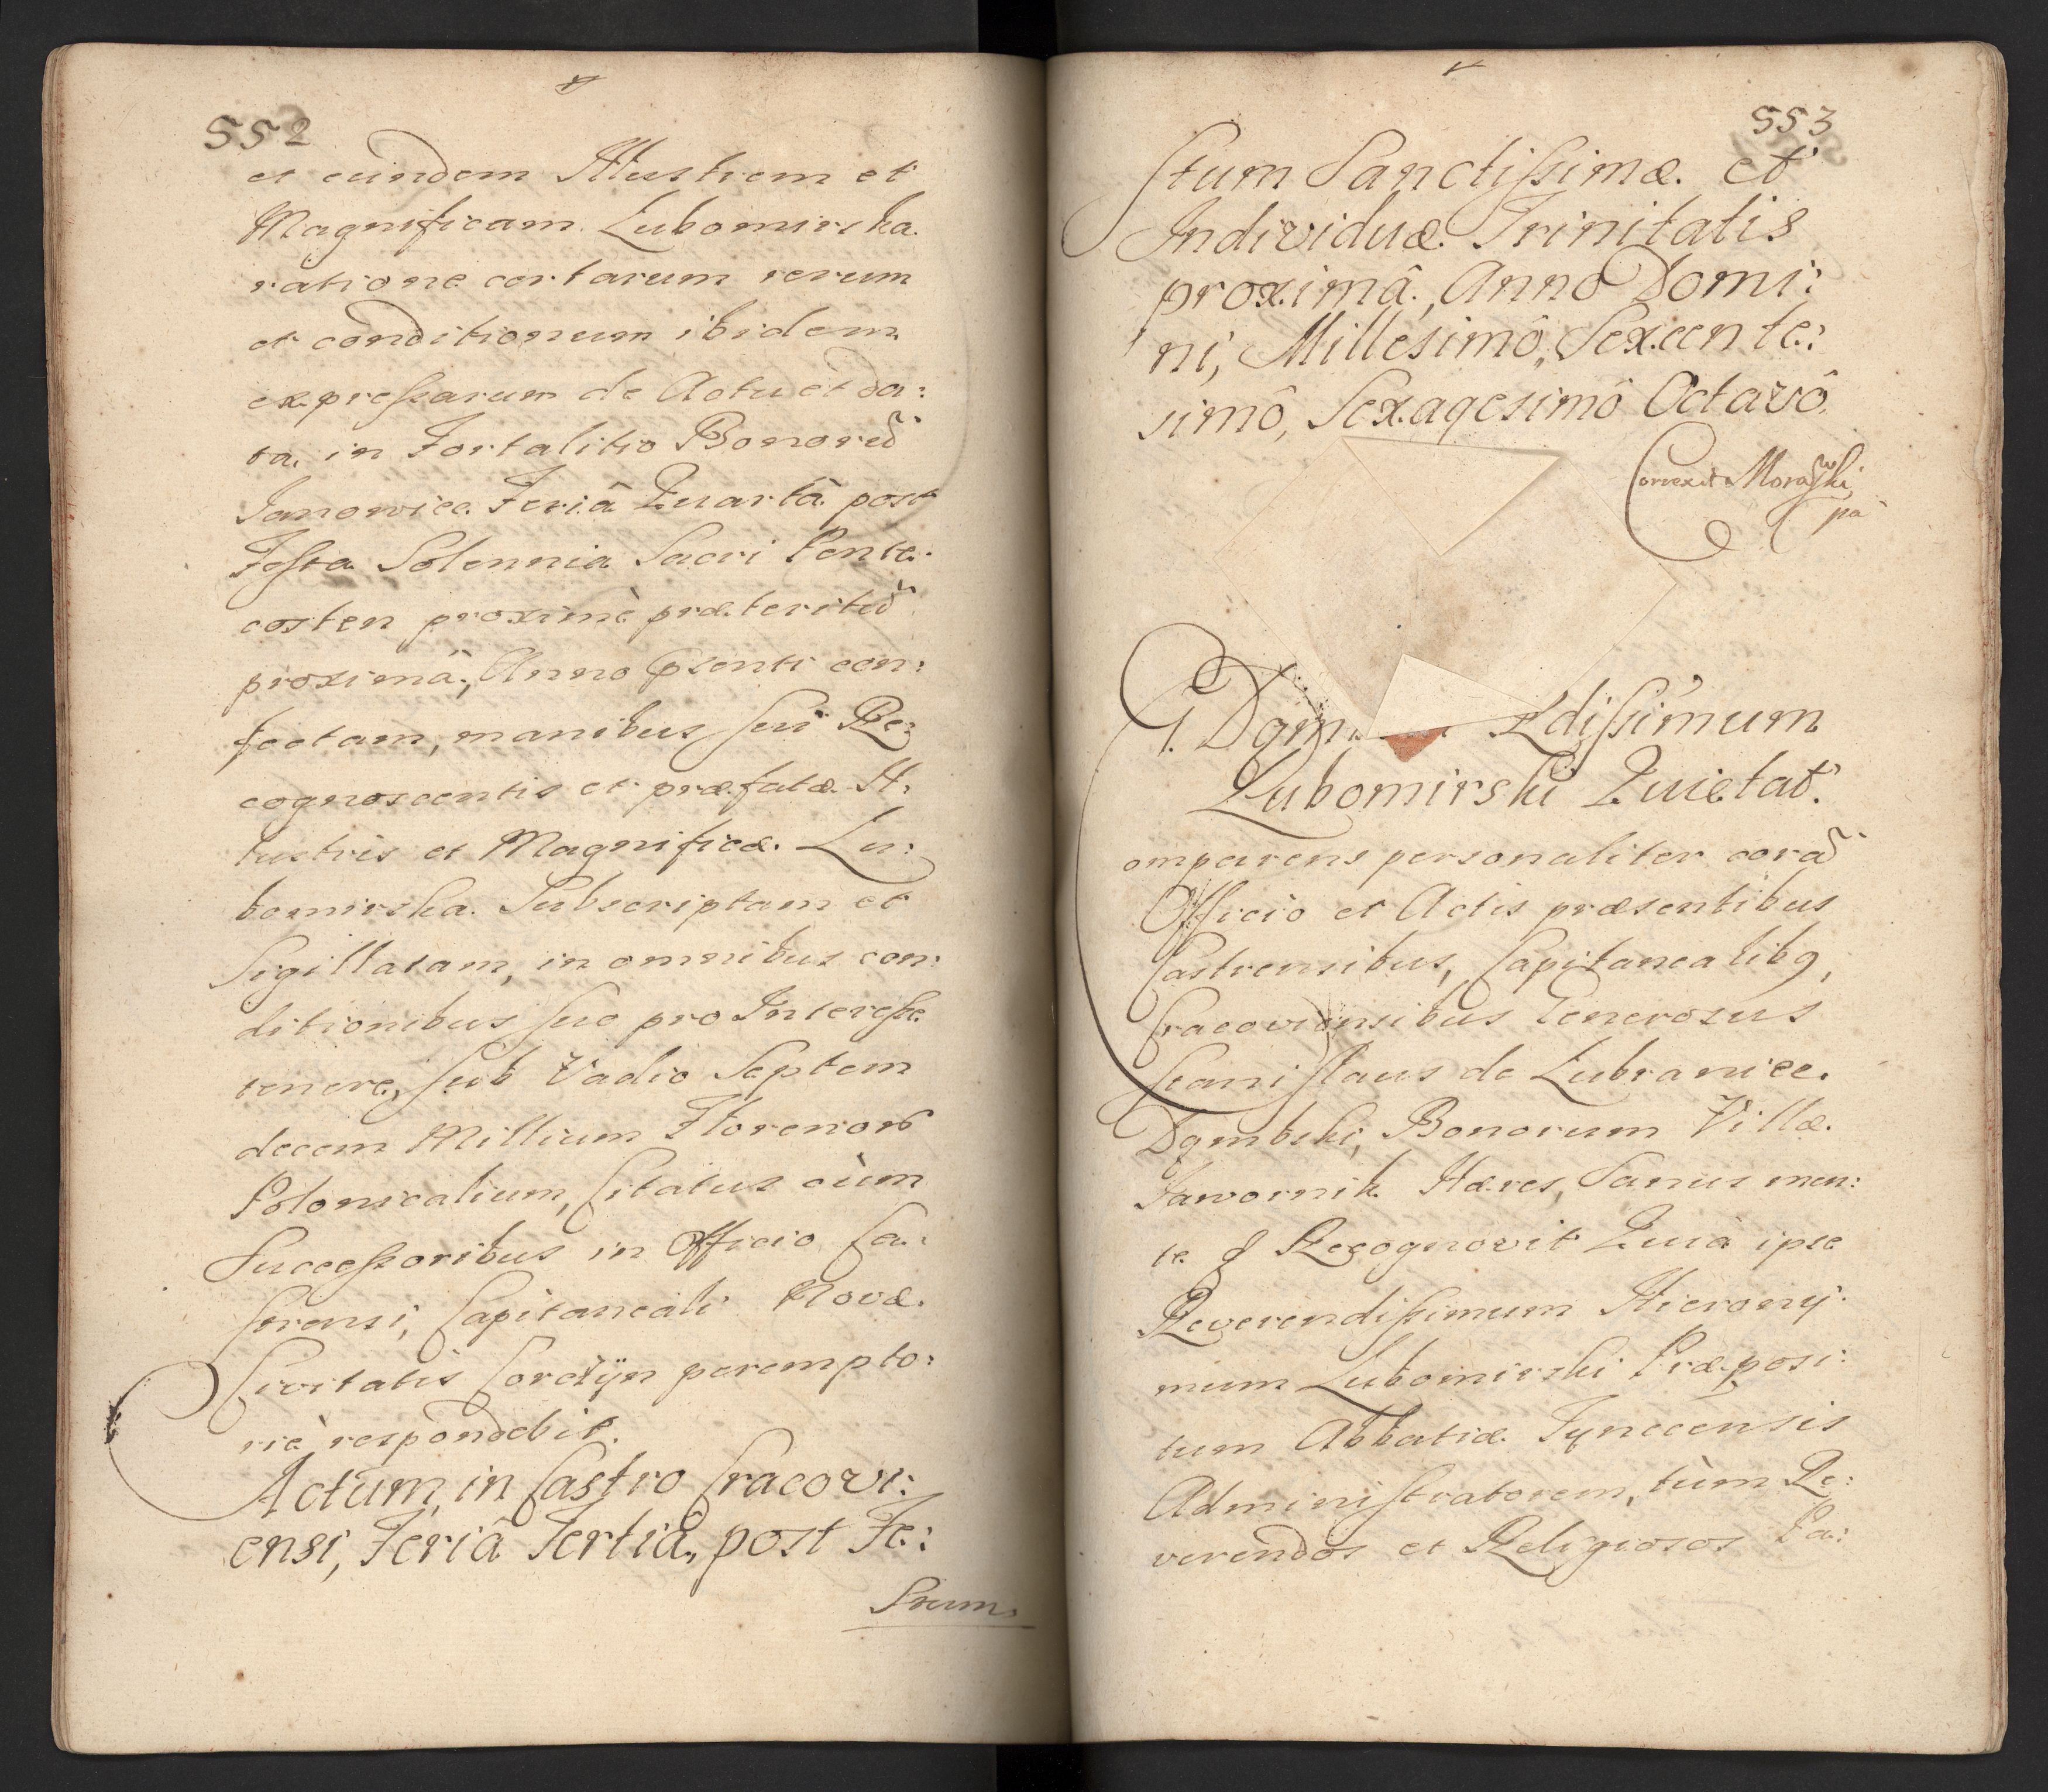 552
et eundem Illustrem et
Magnificam Lubomirska
ratione certarum rerum
et conditionum ibidem
expressarum de Actu et da:
ta in Fortalitio Bonorũ
Janowiec Feriâ Quartâ post
Festa Solennia Sacri Pente:
costen proximè præteritũ
proximâ, Anno pñsenti con:
fectam, manibus sui Re:
cognoscentis et præfatæ Il:
lustris et Magnificæ Lu:
bomirska Subscriptam et
Sigillatam, in omnibus con:
ditionibus suo pro Interesse
tenere, sub Vadio Septem
decem Millium Florenorũ
Polonicalium, Citatus cùm
Successoribus in Officio Ca:
strensi, Capitaneali Novæ
Civitatis Corczÿn perempto:
riè respondebit.
Actum in Castro Cracovi:
ensi, Feriâ Tertiâ, post Fe:
Stum
553
stum Sanctissimæ et
Individuæ Trinitatis
proximâ, Anno Domi:
ni, Millesimô, Sexcente:
simô, Sexagesimô Octavô.
Correxit Morawski
pã
G. Dąm ndissimum
Lubomirski Quietat.
omparens personaliter corã
Officio et Actis præsentibus
Castrensibus, Capitanealibq,
Cracoviensibus Generosus
Stanislaus de Lubraniec
Dąmbski, Bonorum Villæ
Jawornik Hæres, Sanus men:
te & Recognovit Quià ipse
Reverendissimum Hieronÿ:
mum Lubomirski Præposi:
tum Abbatiæ Tynecensis
Administratorem, tùm Re:
verendos et Religiosos Pa: